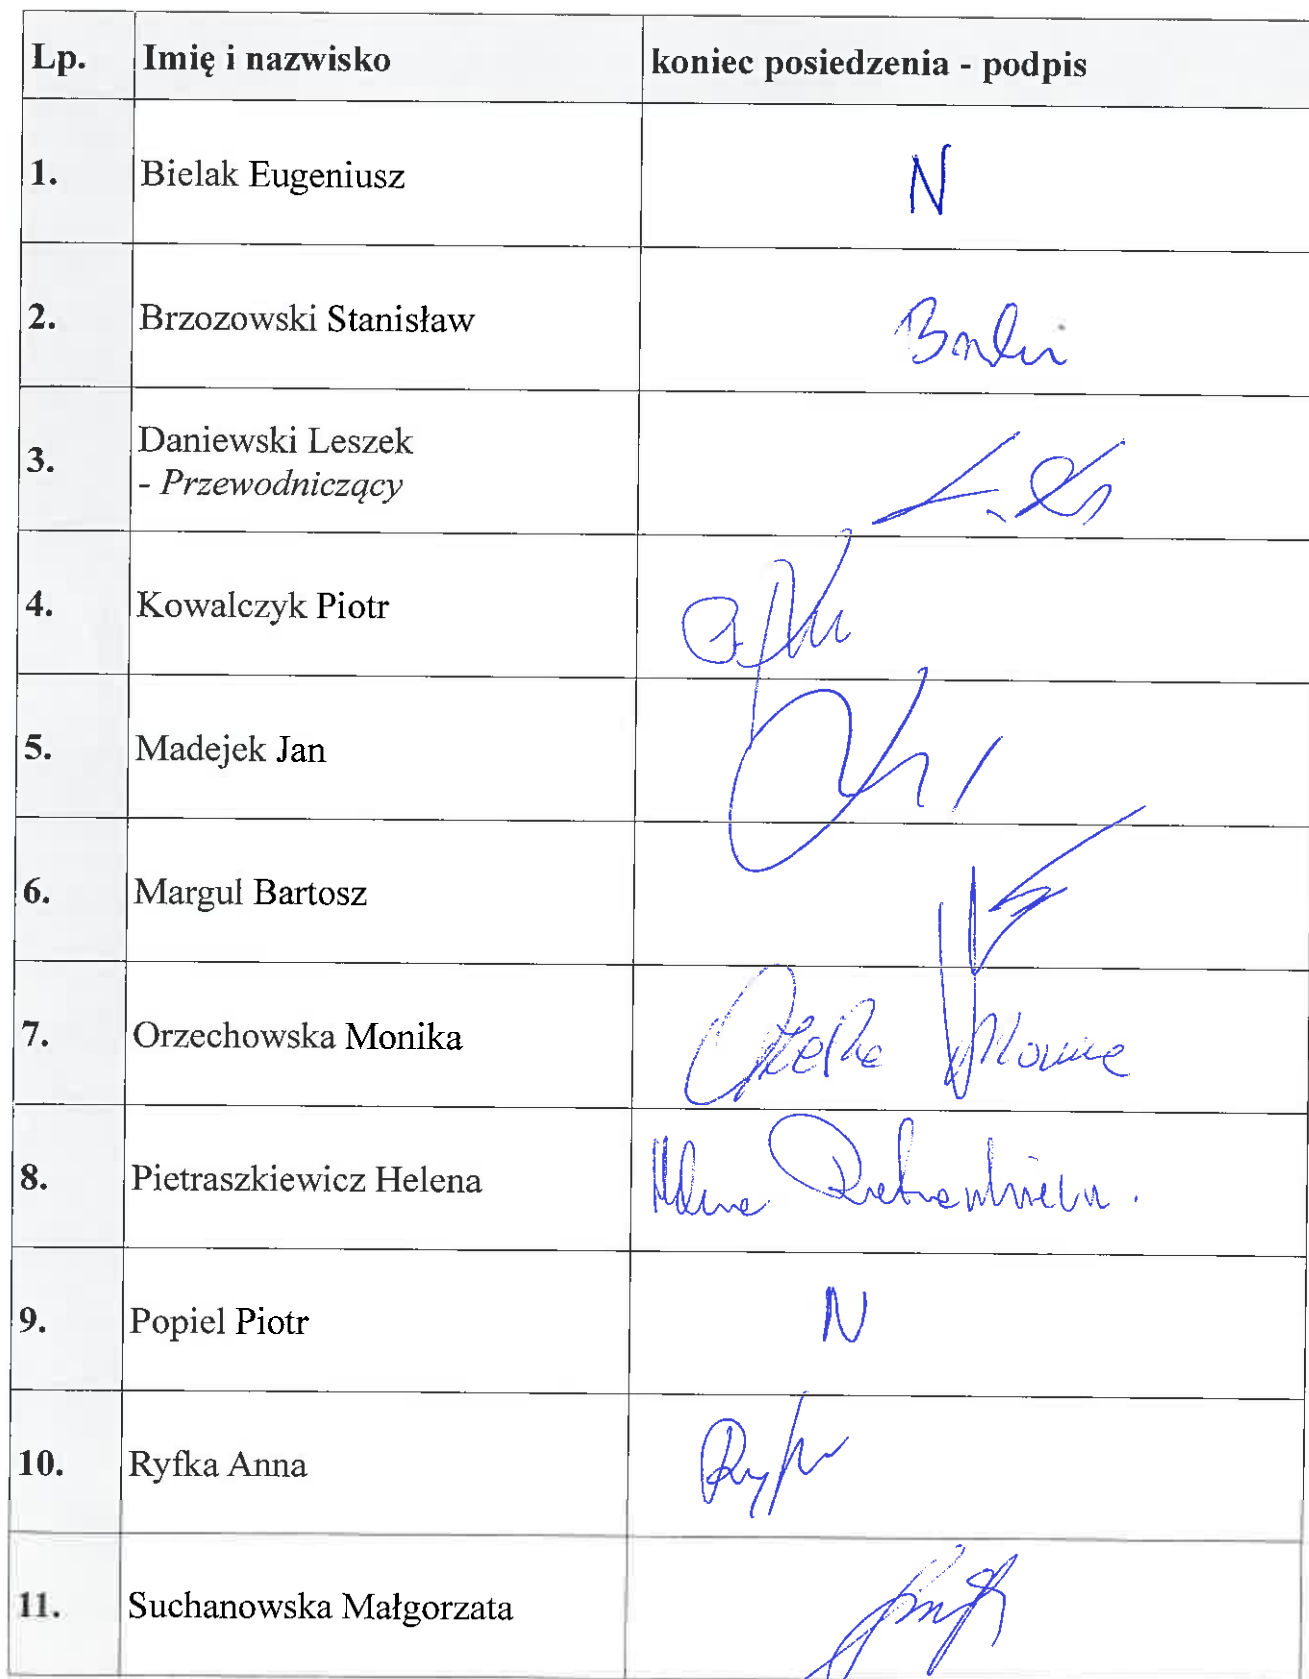 Lp. Imię i nazwisko koniec posiedzenia - podpis
1. Bielak Eugeniusz N
2. Brzozowski Stanisław
3. Daniewski Leszek
- Przewodniczący
4. Kowalczyk Piotr
5. Madejek Jan
6. Margul Bartosz
7. Orzechowska Monika
8. Pietraszkiewicz Helena
9. Popiel Piotr N
10. Ryfka Anna
11. Suchanowska Małgorzata